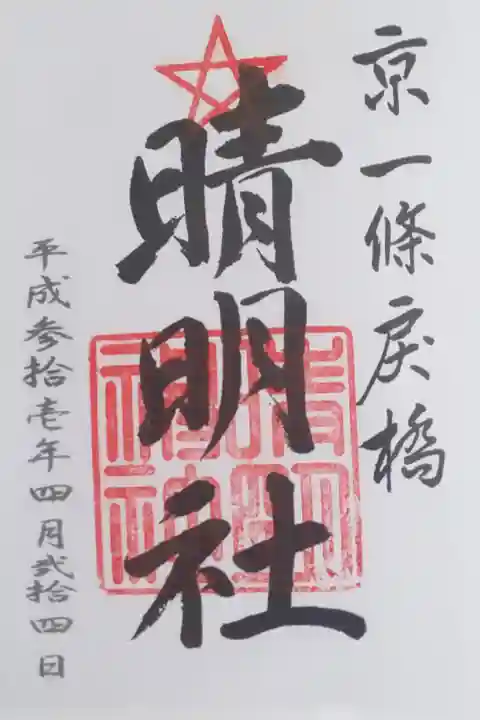 京一條戻橋
晴明社
晴明神社
平成参拾壱年四月弐拾四日